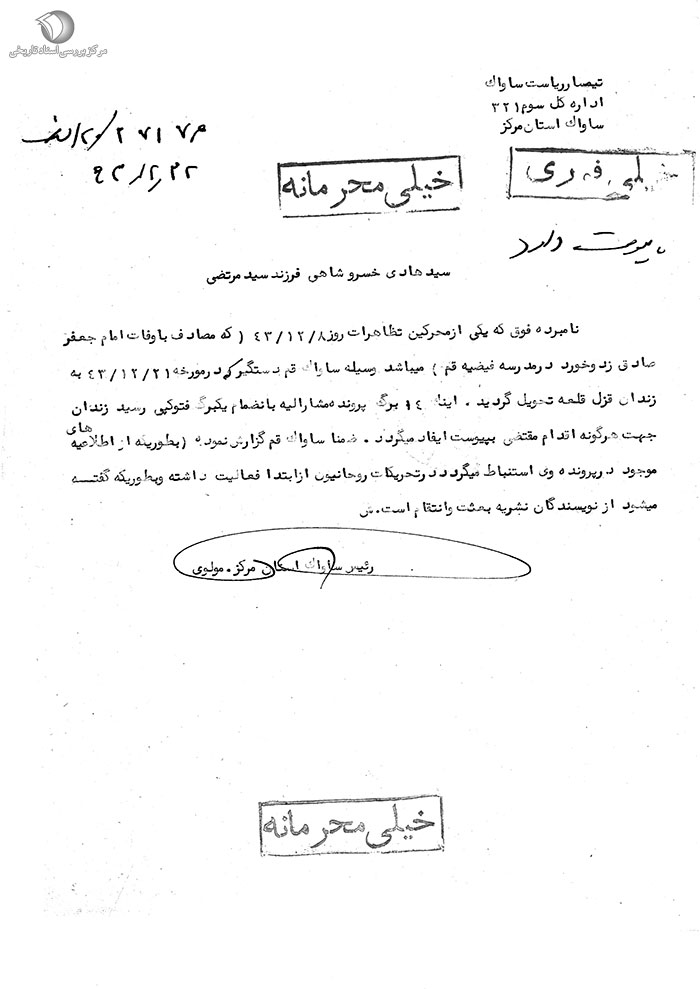 مرکز بررسی اسناد تاریخی
تیمسار ریاست ساواک
اداره کل سوم ۳۲۱
ساواک استان مرکز
خیلی فوری
خیلی محرمانه
پیوست دارد
سید هادی خسروشاهی فرزند سید مرتضی
نامبرده فوق که یکی از محرکین تظاهرات روز ۴۳/۱۲/۸ ( که مصادف با وفات امام جعفر
صادق زد و خورد در مدرسه فیضیه قم ) میباشد وسیله ساواک قم دستگیر که در مورخه ۴۳/۱۲/۲۱ به
زندان قزل قلعه تحویل گردید . اینک ۱۴ برگ پرونده مشارالیه بانضمام یکبرگ فتوکپی رسید زندان
جهت هرگونه اقدام مقتضی بپیوست ایفاد میگردد . ضمنا ساواک قم گزارش نموده ( بطوریکه از اطلاعیه های
موجود در پرونده وی استنباط میگردد در تحریکات روحانیون از ابتدا فعالیت داشته و بطوریکه گفتسه
میشود از نویسندگان نشریه بعثت و انتقام است.
رئیس ساواک استان مرکز . مولوی
خیلی محرمانه